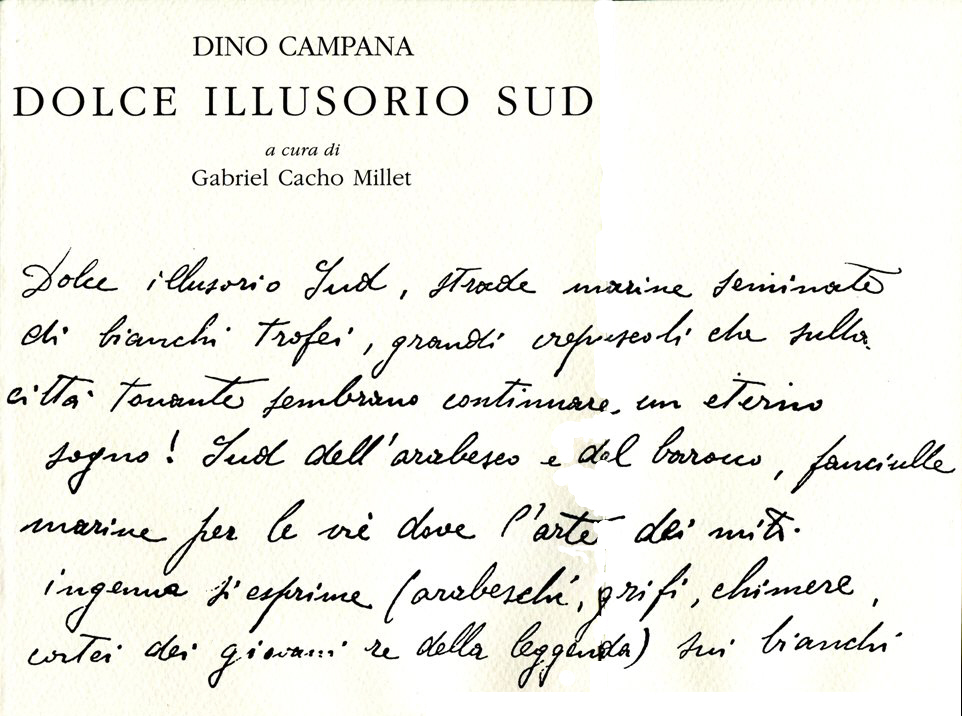 DINO CAMPANA
DOLCE ILLUSORIO SUD
a cura di
Gabriel Cacho Millet
Dolce illusorio Sud, strade marine seminate
di bianchi trofei, grandi crepuscoli che sulla
città tonante sembrano continuare un eterno
sogno! Sud dell'arabesco e del barocco, fanciulle
marine per le vie dove l'arte dei miti
ingenua si esprime (arabeschi, grifi, chimere,
cortei dei giovani re della leggenda) sui bianchi